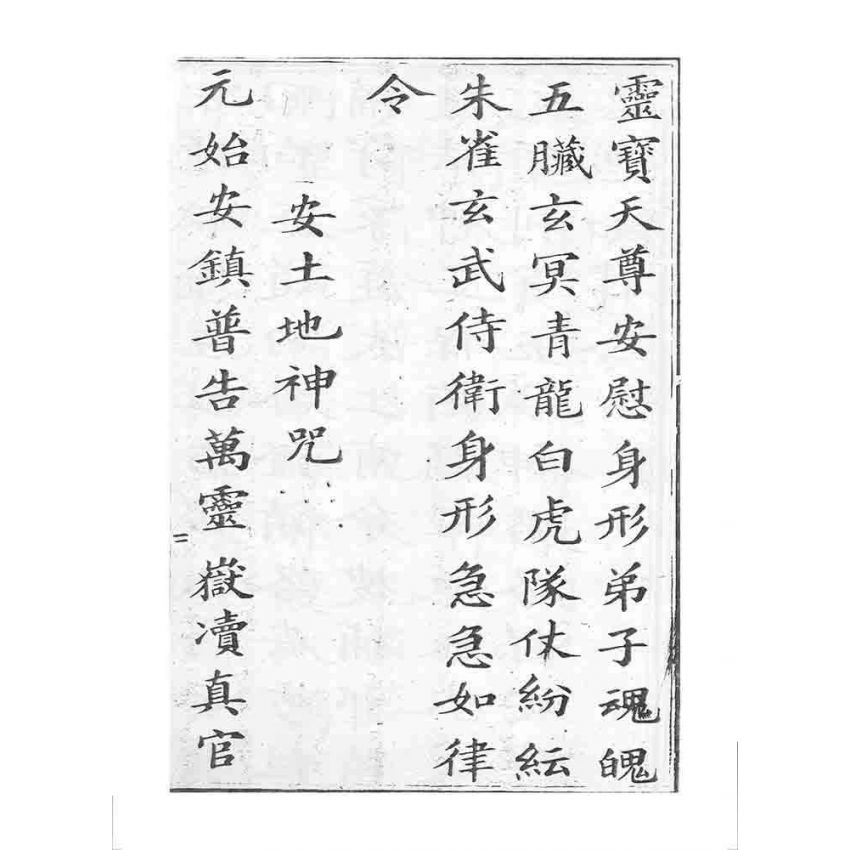 靈寶天尊安慰身形弟子魂魄
五臟玄冥青龍白虎隊仗紛紜
朱雀玄武侍衛身形急急如律
令
安土地神咒
元始安鎮普告萬靈嶽瀆真官
二